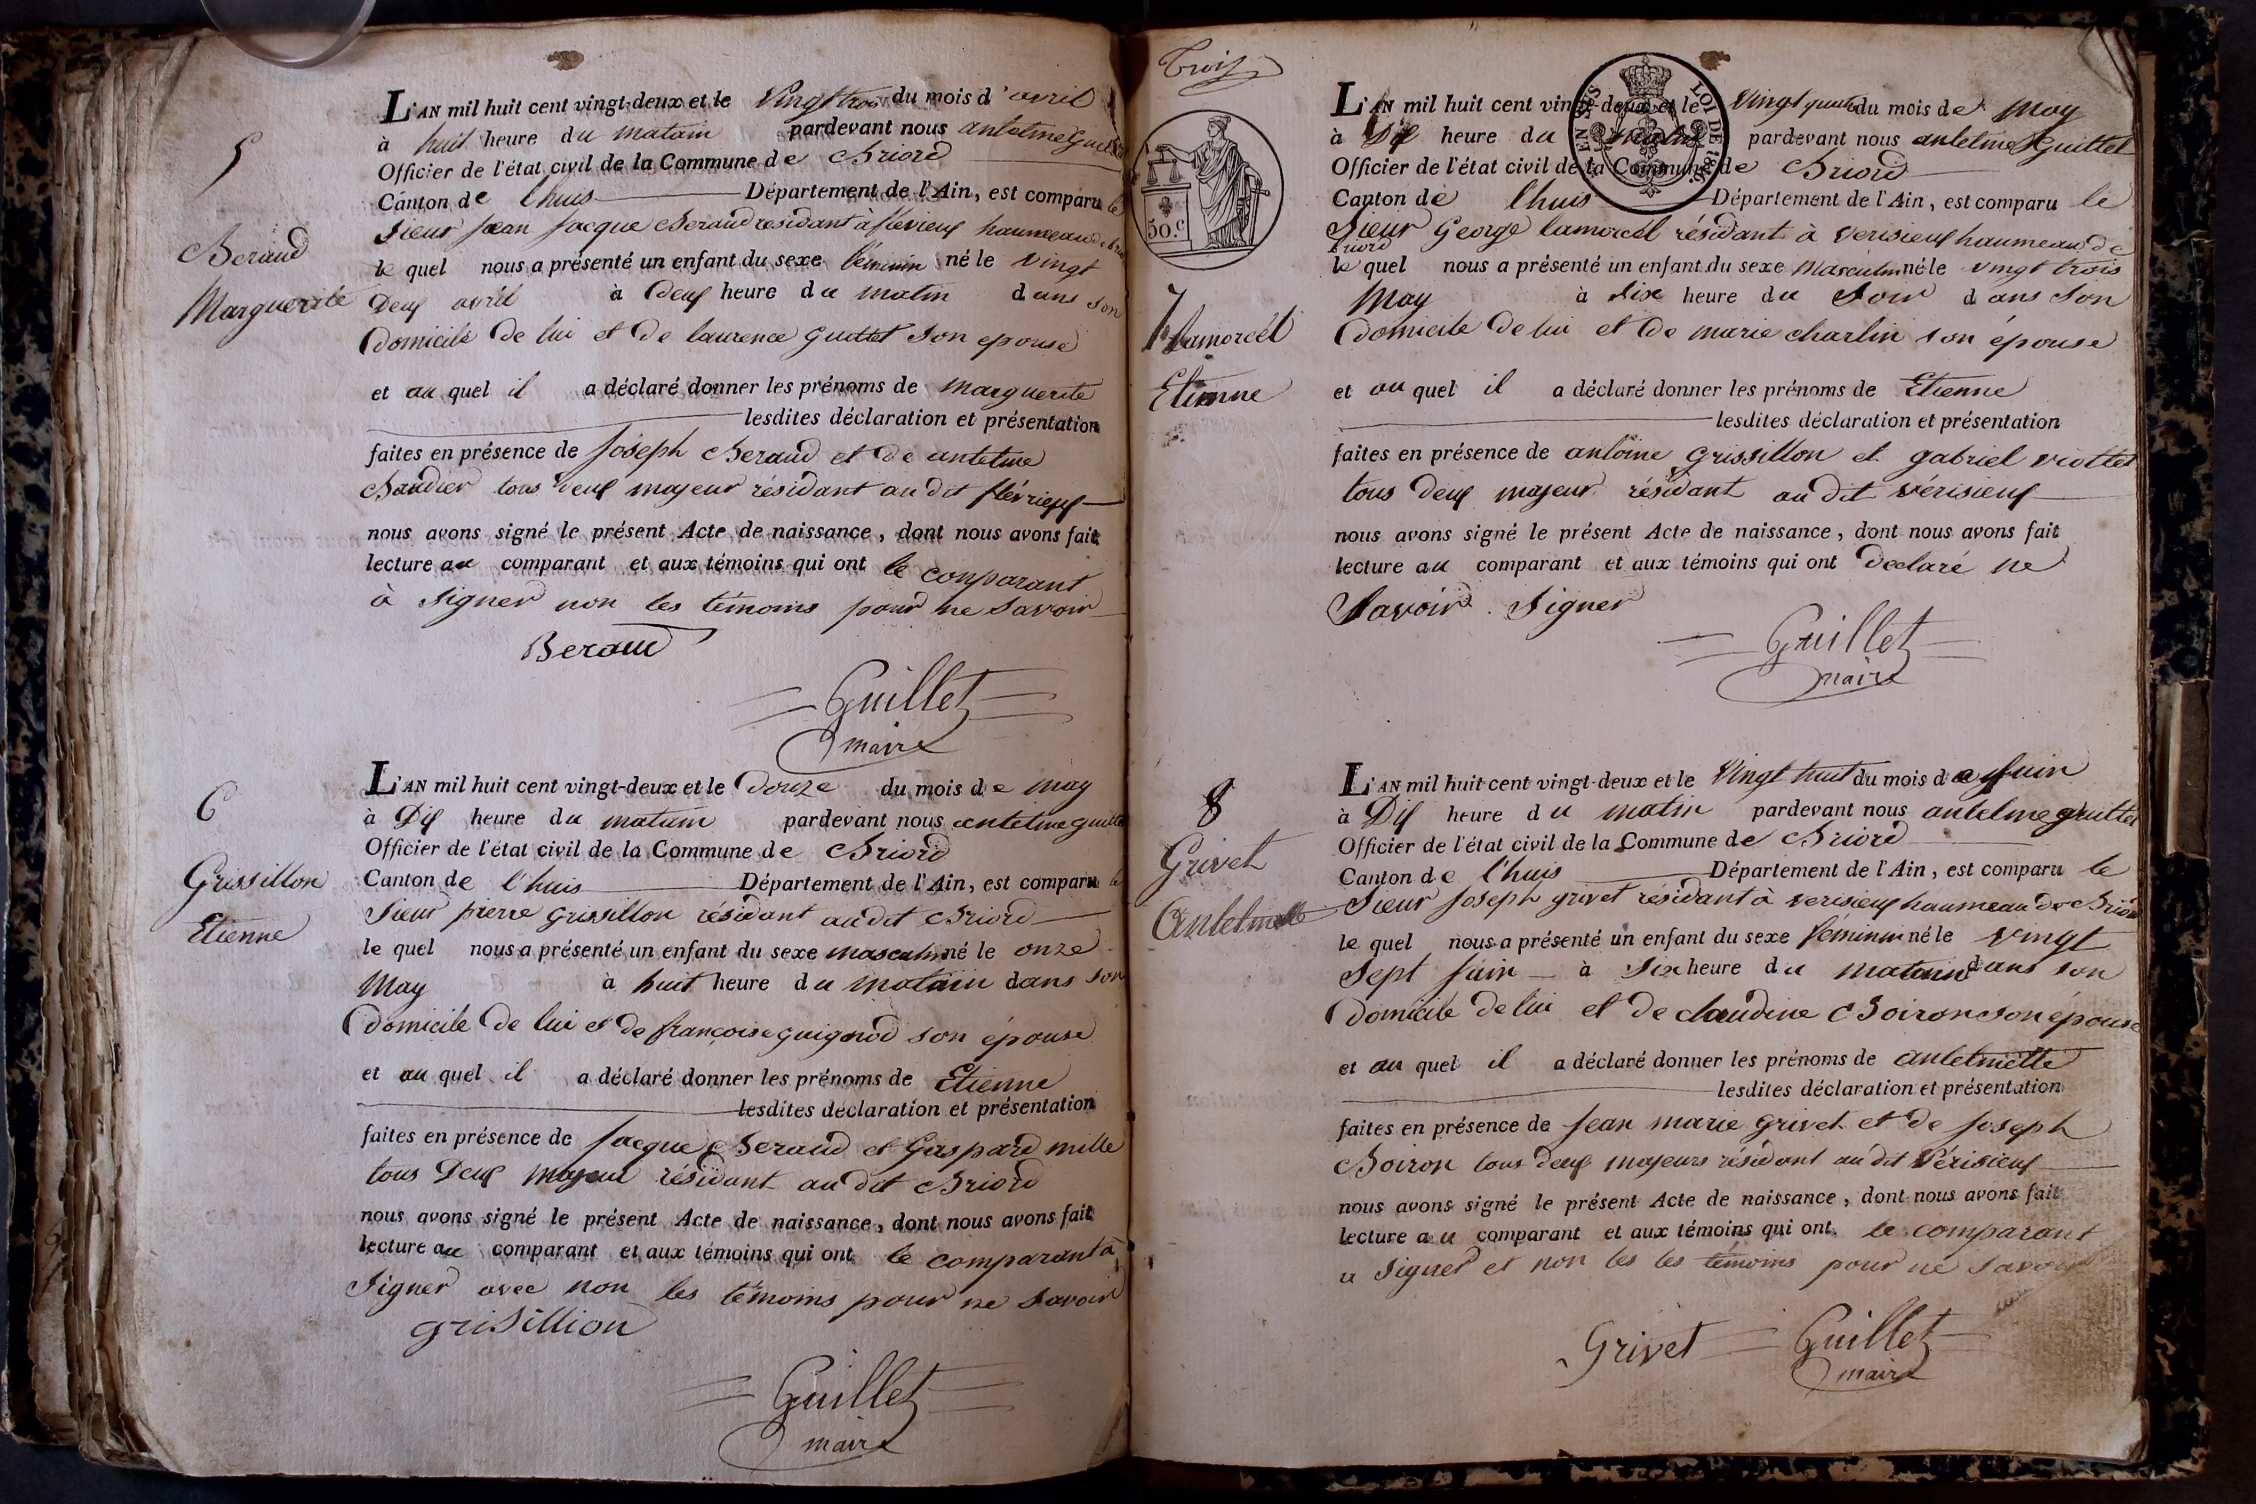 5
Beraud
Marguerite
L'AN mil huit cent vingt-deux et le Vingt trois du mois d'avril
à huit heure du matain pardevant nous antelme Guillet
Officier de l'état civil de la Commune de Briord
Canton de l'huis Département de l'Ain, est comparu le
sieur Jean Jacque Beraud residant à flévieux haumeau de Briord
le quel nous a présenté un enfant du sexe féminin né le vingt
Deux avril à Deux heure du matin dans son
Domicile De lui et De laurence guillet son epouse
et au quel il a déclaré donner les prénoms de marguerite
lesdites déclaration et présentation
faites en présence de Joseph Beraud et de antelme
Baudier tous Deux majeur résidant au dit flévrieux
nous avons signé le présent Acte de naissance, dont nous avons fait
lecture au comparant et aux témoins qui ont le comparant
à signer non les témoins pour ne savoir
Beraud
Guillet
maire
6
Grissillon
Etienne
L'AN mil huit cent vingt-deux et le Douze du mois de may
à Dix heure du matain pardevant nous antelme guillet
Officier de l'état civil de la Commune de Briord
Canton de l'huis Département de l'Ain, est comparu le
sieur pierre grissillon résidant audit Briord
le quel nous a présenté un enfant du sexe masculin né le onze
May à huit heure du matain dans son
Domicile De lui et de françoise guignod son épouse
et au quel il a déclaré donner les prénoms de Etienne
lesdites déclaration et présentation
faites en présence de Jacque Beraud et Gaspard mille
tous Deux majeur résidant au dit Briord
nous avons signé le présent Acte de naissance, dont nous avons fait
lecture au comparant et aux témoins qui ont le comparant à
signer avec non les témoins pour ne savoir
griSillion
Guillet
maire
Trois
50.c
EN SUS
LOI DE 1816.
7
Lamorcél
Etienne
L'AN mil huit cent vingt-deux et le Vingt quatre du mois de May
à Dix heure du matin pardevant nous antelme Guillet
Officier de l'état civil de la Commune de Briord
Canton de l'huis Département de l'Ain, est comparu le
Sieur George lamorcél résidant à verisieux haumeau de
Briord
le quel nous a présenté un enfant du sexe Masculin né le vingt trois
May à six heure du Soir dans Son
Domicile De lui et De marie charlin son épouse
et au quel il a déclaré donner les prénoms de Etienne
lesdites déclaration et présentation
faites en présence de antoine grissillon et gabriel viollet
tous Deux majeur résidant au dit vérisieux
nous avons signé le présent Acte de naissance, dont nous avons fait
lecture au comparant et aux témoins qui ont Declaré ne
Savoir Signer
Guillet
maire
8
Grivet
Antelmette
L'AN mil huit cent vingt-deux et le Vingt huit du mois de Juin
à Dix heure du matin pardevant nous antelme guillet
Officier de l'état civil de la Commune de Briord
Canton de l'huis Département de l'Ain, est comparu le
Sieur Joseph grivet résidant à verisieux haumeau de Briord
le quel nous a présenté un enfant du sexe féminin né le vingt
Sept Juin à Six heure du matain dans son
Domicile De lui et De claudine Boiron son épouse
et au quel il a déclaré donner les prénoms de antelmette
lesdites déclaration et présentation
faites en présence de Jean marie grivet et de Joseph
Boiron tous deux majeurs résidant au dit Vérisieux
nous avons signé le présent Acte de naissance, dont nous avons fait
lecture au comparant et aux témoins qui ont le comparant
a Signer et non les les témoins pour ne savoir
Grivet
Guillet
maire